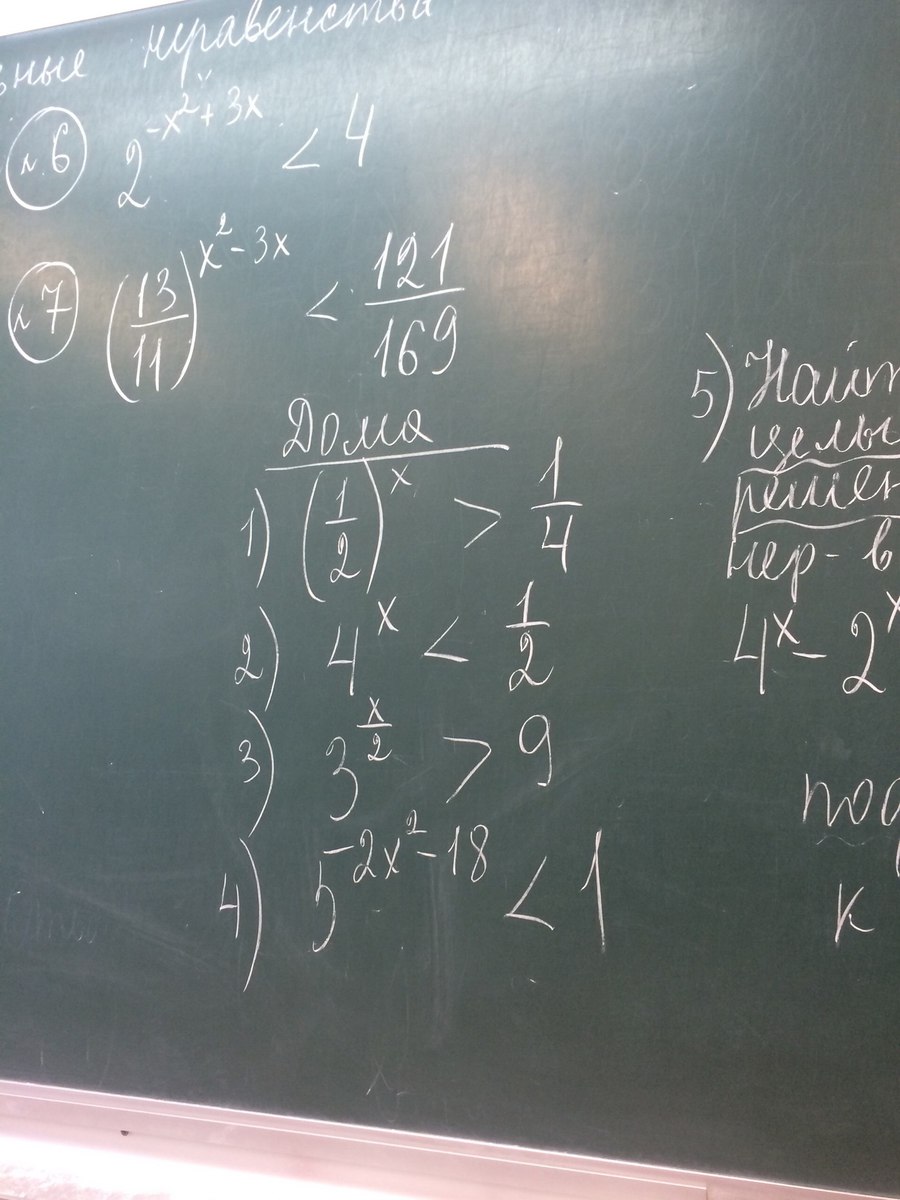 неравенства
№6 2^{-x^2+3x} < 4
№7 (13/11)^{x^2-3x} < 121/169
Дома
1) (1/2)^x > 1/4
2) 4^x < 1/2
3) 3^{x/2} > 9
4) 5^{-2x^2-18} < 1
5) Найт
целы
решен
нер-в
4^x - 2^x
к